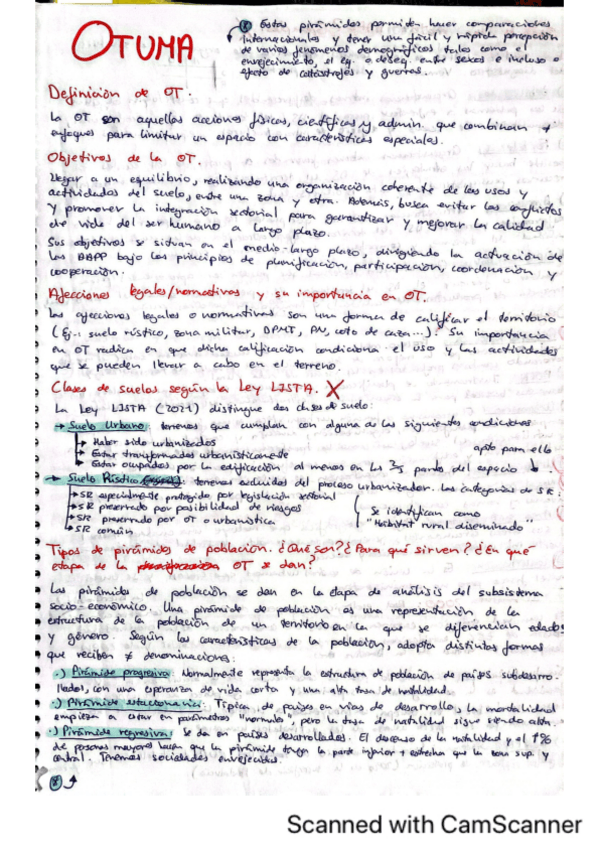 OTUMA
(*) Estas pirámides permiten hacer comparaciones
internacionales y tener una fácil y rápida percepción
de varios fenómenos demográficos tales como el
envejecimiento, el eq. o deseq. entre sexos e incluso
efecto de catástrofes y guerras.
Definición de OT.
La OT son aquellas acciones físicas, científicas y admin. que combinan
enfoques para limitar un espacio con características especiales.
Objetivos de la OT.
Llegar a un equilibrio, realizando una organización coherente de los usos y
actividades del suelo, entre una zona y otra. Además, busca evitar los conflictos
y promover la integración sectorial para garantizar y mejorar la calidad
de vida del ser humano a largo plazo.
Sus objetivos se sitúan en el medio-largo plazo, dirigiendo la actuación de
las AAPP bajo los principios de planificación, participación, coordinación y
cooperación.
Afecciones legales/normativas y su importancia en OT.
Las afecciones legales o normativas son una forma de calificar el territorio
(Ej.: suelo rústico, zona militar, DPMT, PN, coto de caza...). Su importancia
en OT radica en que dicha calificación condiciona el uso y las actividades
que se pueden llevar a cabo en el terreno.
Clases de suelos según la Ley LISTA. X
La Ley LISTA (2021) distingue dos clases de suelo:
→ Suelo Urbano: terrenos que cumplan con alguna de las siguientes condiciones
→ Haber sido urbanizados
→ Estar transformados urbanísticamente
→ Estar ocupados por la edificación al menos en las 2/3 partes del espacio
apto para ello
→ Suelo Rústico: terrenos excluidos del proceso urbanizador. Las categorías de SR:
→ SR especialmente protegido por legislación sectorial
→ SR preservado por posibilidad de riesgos
→ SR preservado por OT o urbanística
→ SR común
Se identifican como
"Hábitat rural diseminado"
Tipos de pirámides de población. ¿Qué son? ¿Para qué sirven? ¿En qué
etapa de la OT se dan?
Las pirámides de población se dan en la etapa de análisis del subsistema
socio-económico. Una pirámide de población es una representación de la
estructura de la población de un territorio en la que se diferencian edades
y género. Según las características de la población, adopta distintas formas
que reciben ≠ denominaciones:
·) Pirámide progresiva: Normalmente representa la estructura de población de países subdesarro-
llados, con una esperanza de vida corta y una alta tasa de natalidad.
·) Pirámide estacionaria: Típica de países en vías de desarrollo, la mortalidad
empieza a estar en parámetros "normales", pero la tasa de natalidad sigue siendo alta.
·) Pirámide regresiva: Se da en países desarrollados. El descenso de la natalidad y el ↑%
de personas mayores hacen que la pirámide tenga la parte inferior + estrecha que la zona sup. y
central. Tenemos sociedades envejecidas.
(*)
Scanned with CamScanner